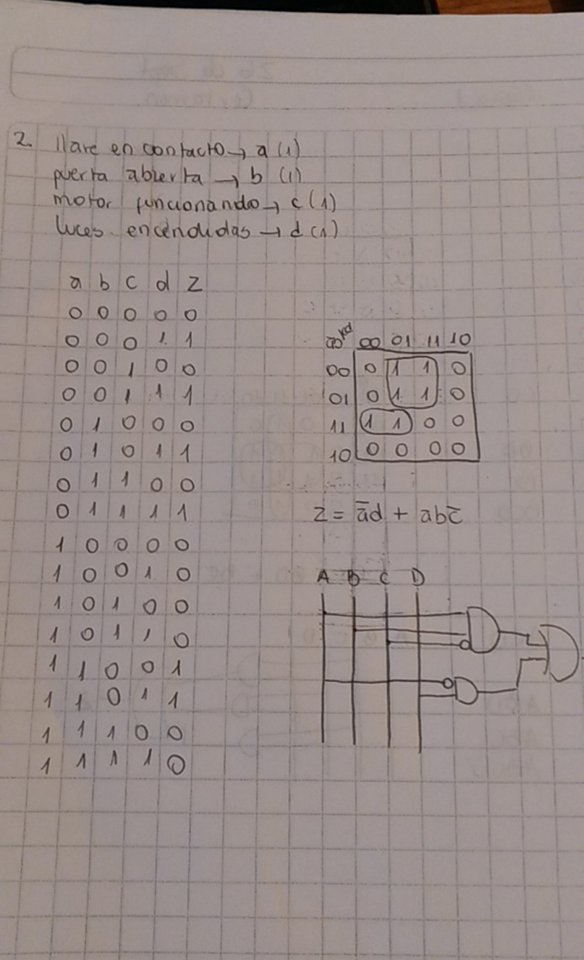 2. llave en contacto → a (1)
puerta abierta → b (1)
motor funcionando → c (1)
luces encendidas → d (1)
a b c d z
0 0 0 0 0
0 0 0 1 1
0 0 1 0 0
0 0 1 1 1
0 1 0 0 0
0 1 0 1 1
0 1 1 0 0
0 1 1 1 1
1 0 0 0 0
1 0 0 1 0
1 0 1 0 0
1 0 1 1 0
1 1 0 0 1
1 1 0 1 1
1 1 1 0 0
1 1 1 1 0
00 01 11 10
00 0 1 1 0
01 0 1 1 0
11 1 1 0 0
10 0 0 0 0
z = a̅d + abc̅
A B C D